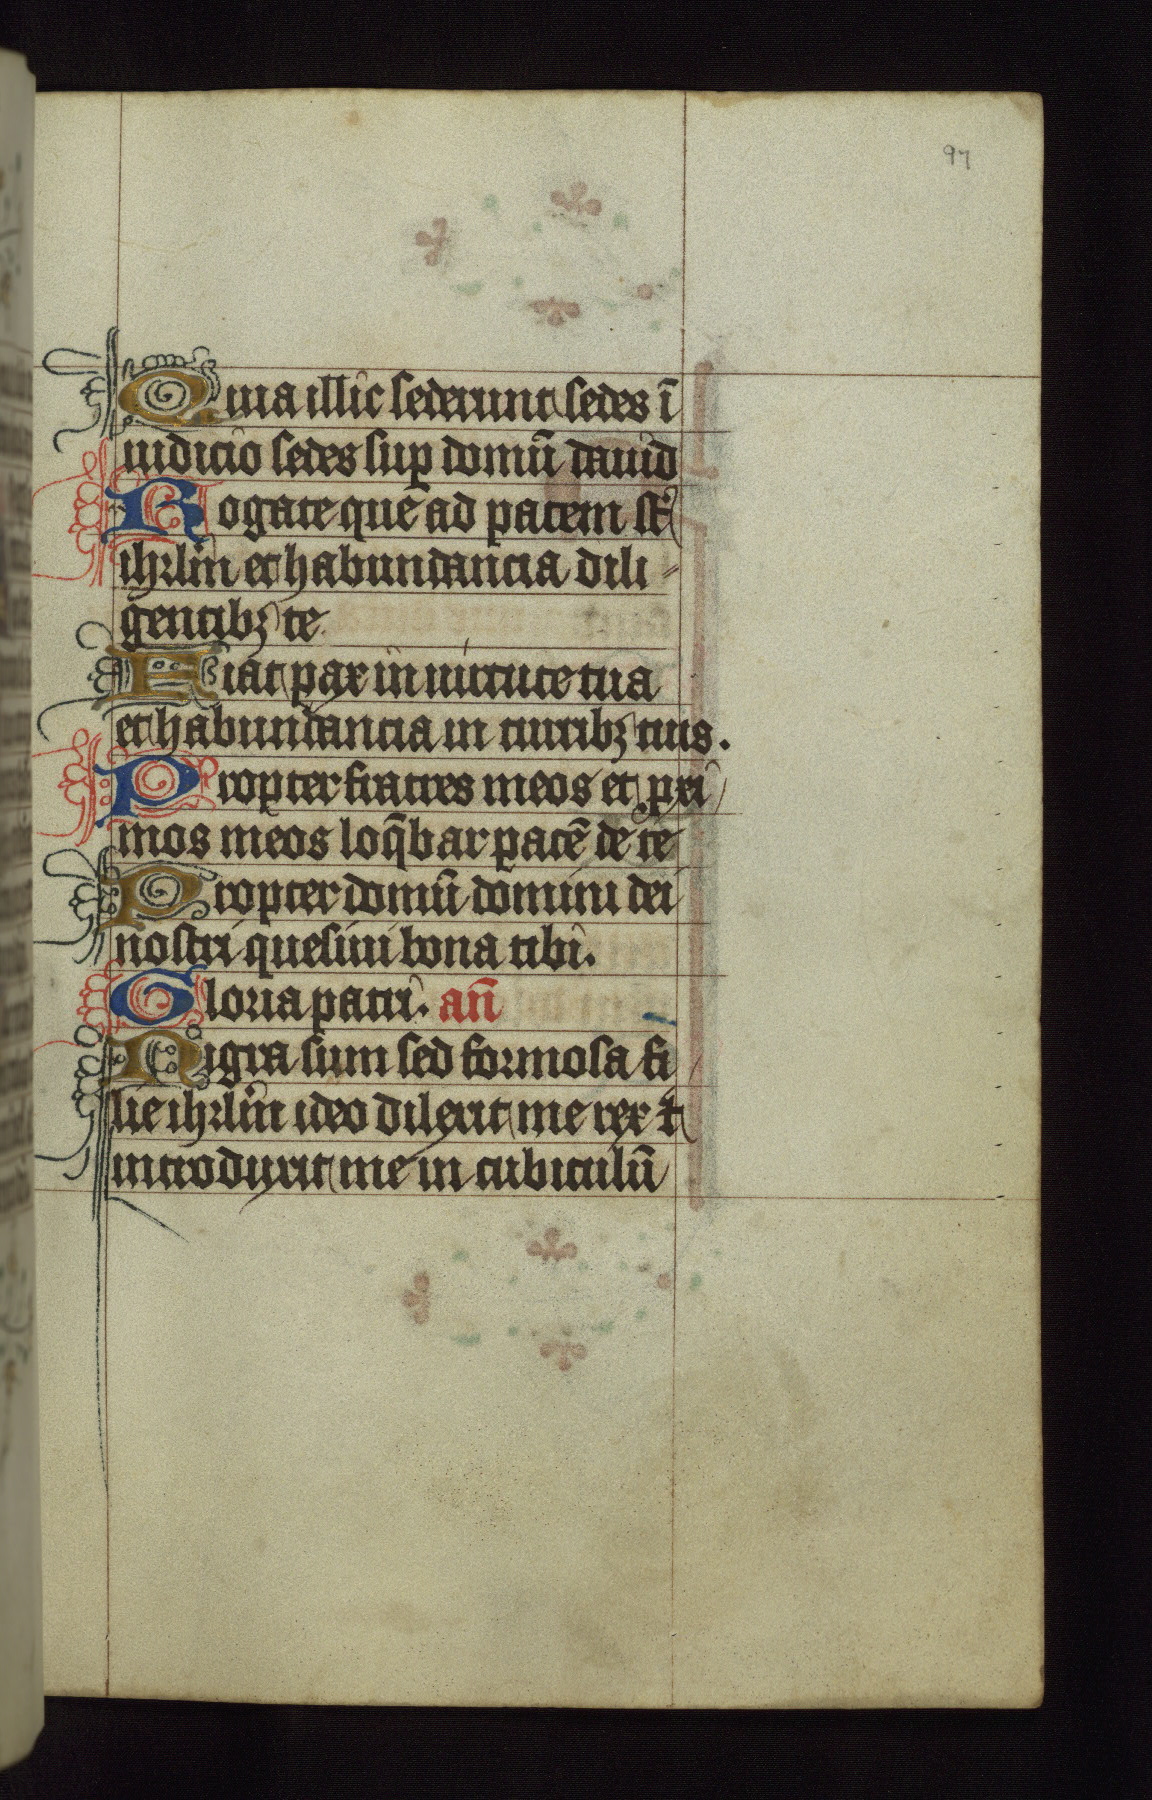 97
Quia illic sederunt sedes ī
iudicio sedes suꝑ domū dauid
Rogate que ad pacem st̄
ihrl̄m et habundancia dili⸗
gentibꝫ te
Fiat pax in uirtute tua
et habundancia in turribꝫ tuis.
Propter fratres meos et ꝓxi
mos meos loq̄bar pacē de te
Propter domū domini dei
nostri quesiui bona tibi.
Gloria patri. an̄
Nigra sum sed formosa fi
lie ihrl̄m ideo dilexit me rex ⁊
introduxit me in cubiculū